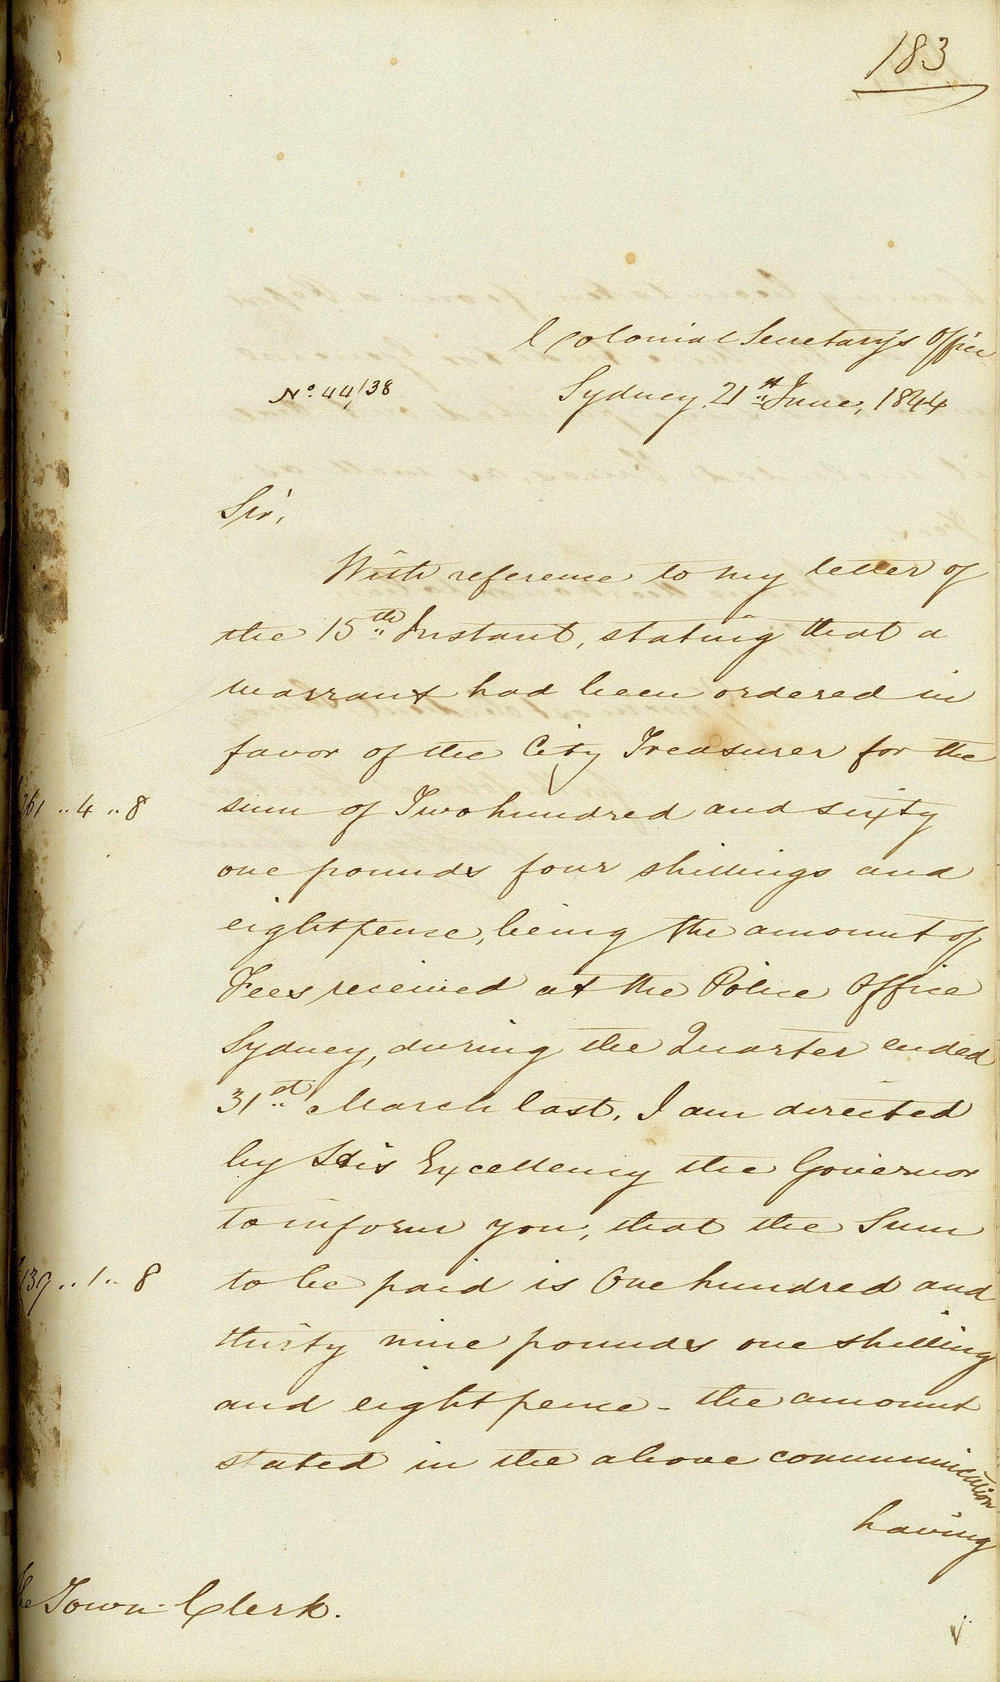 183
Colonial Secretary's Office
No. 44/138
Sydney 21st June, 1844
Sir,
With reference to my letter of
the 15th Instant, stating that a
warrant had been ordered in
favor of the City Treasurer for the
261 .. 4 .. 8
sum of Two hundred and sixty
one pounds four shillings and
eightpence, being the amount of
Fees received at the Police Office
Sydney, during the Quarter ended
31st March last, I am directed
by His Excellency the Governor
to inform you, that the Sum
139 .. 1 .. 8
to be paid is One hundred and
thirty nine pounds one shilling
and eight pence - the amount
stated in the above communication
having
The Town Clerk.